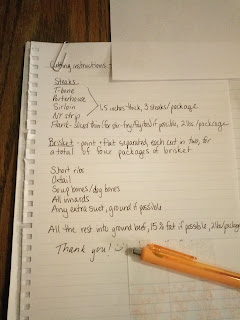 Cutting instructions:
Steaks
T-bone
Porterhouse
Sirloin
NY strip
1.5 inches thick, 3 steaks/package
Flank - sliced thin (for stir-frying/fajitas) if possible, 2 lbs/package
Brisket - point + flat separated, each cut in two, for
a total of four packages of brisket
Short ribs
Oxtail
Soup bones/dog bones
All innards
Any extra suet, ground if possible
All the rest into ground beef, 15% fat if possible, 2 lbs/package
Thank you!